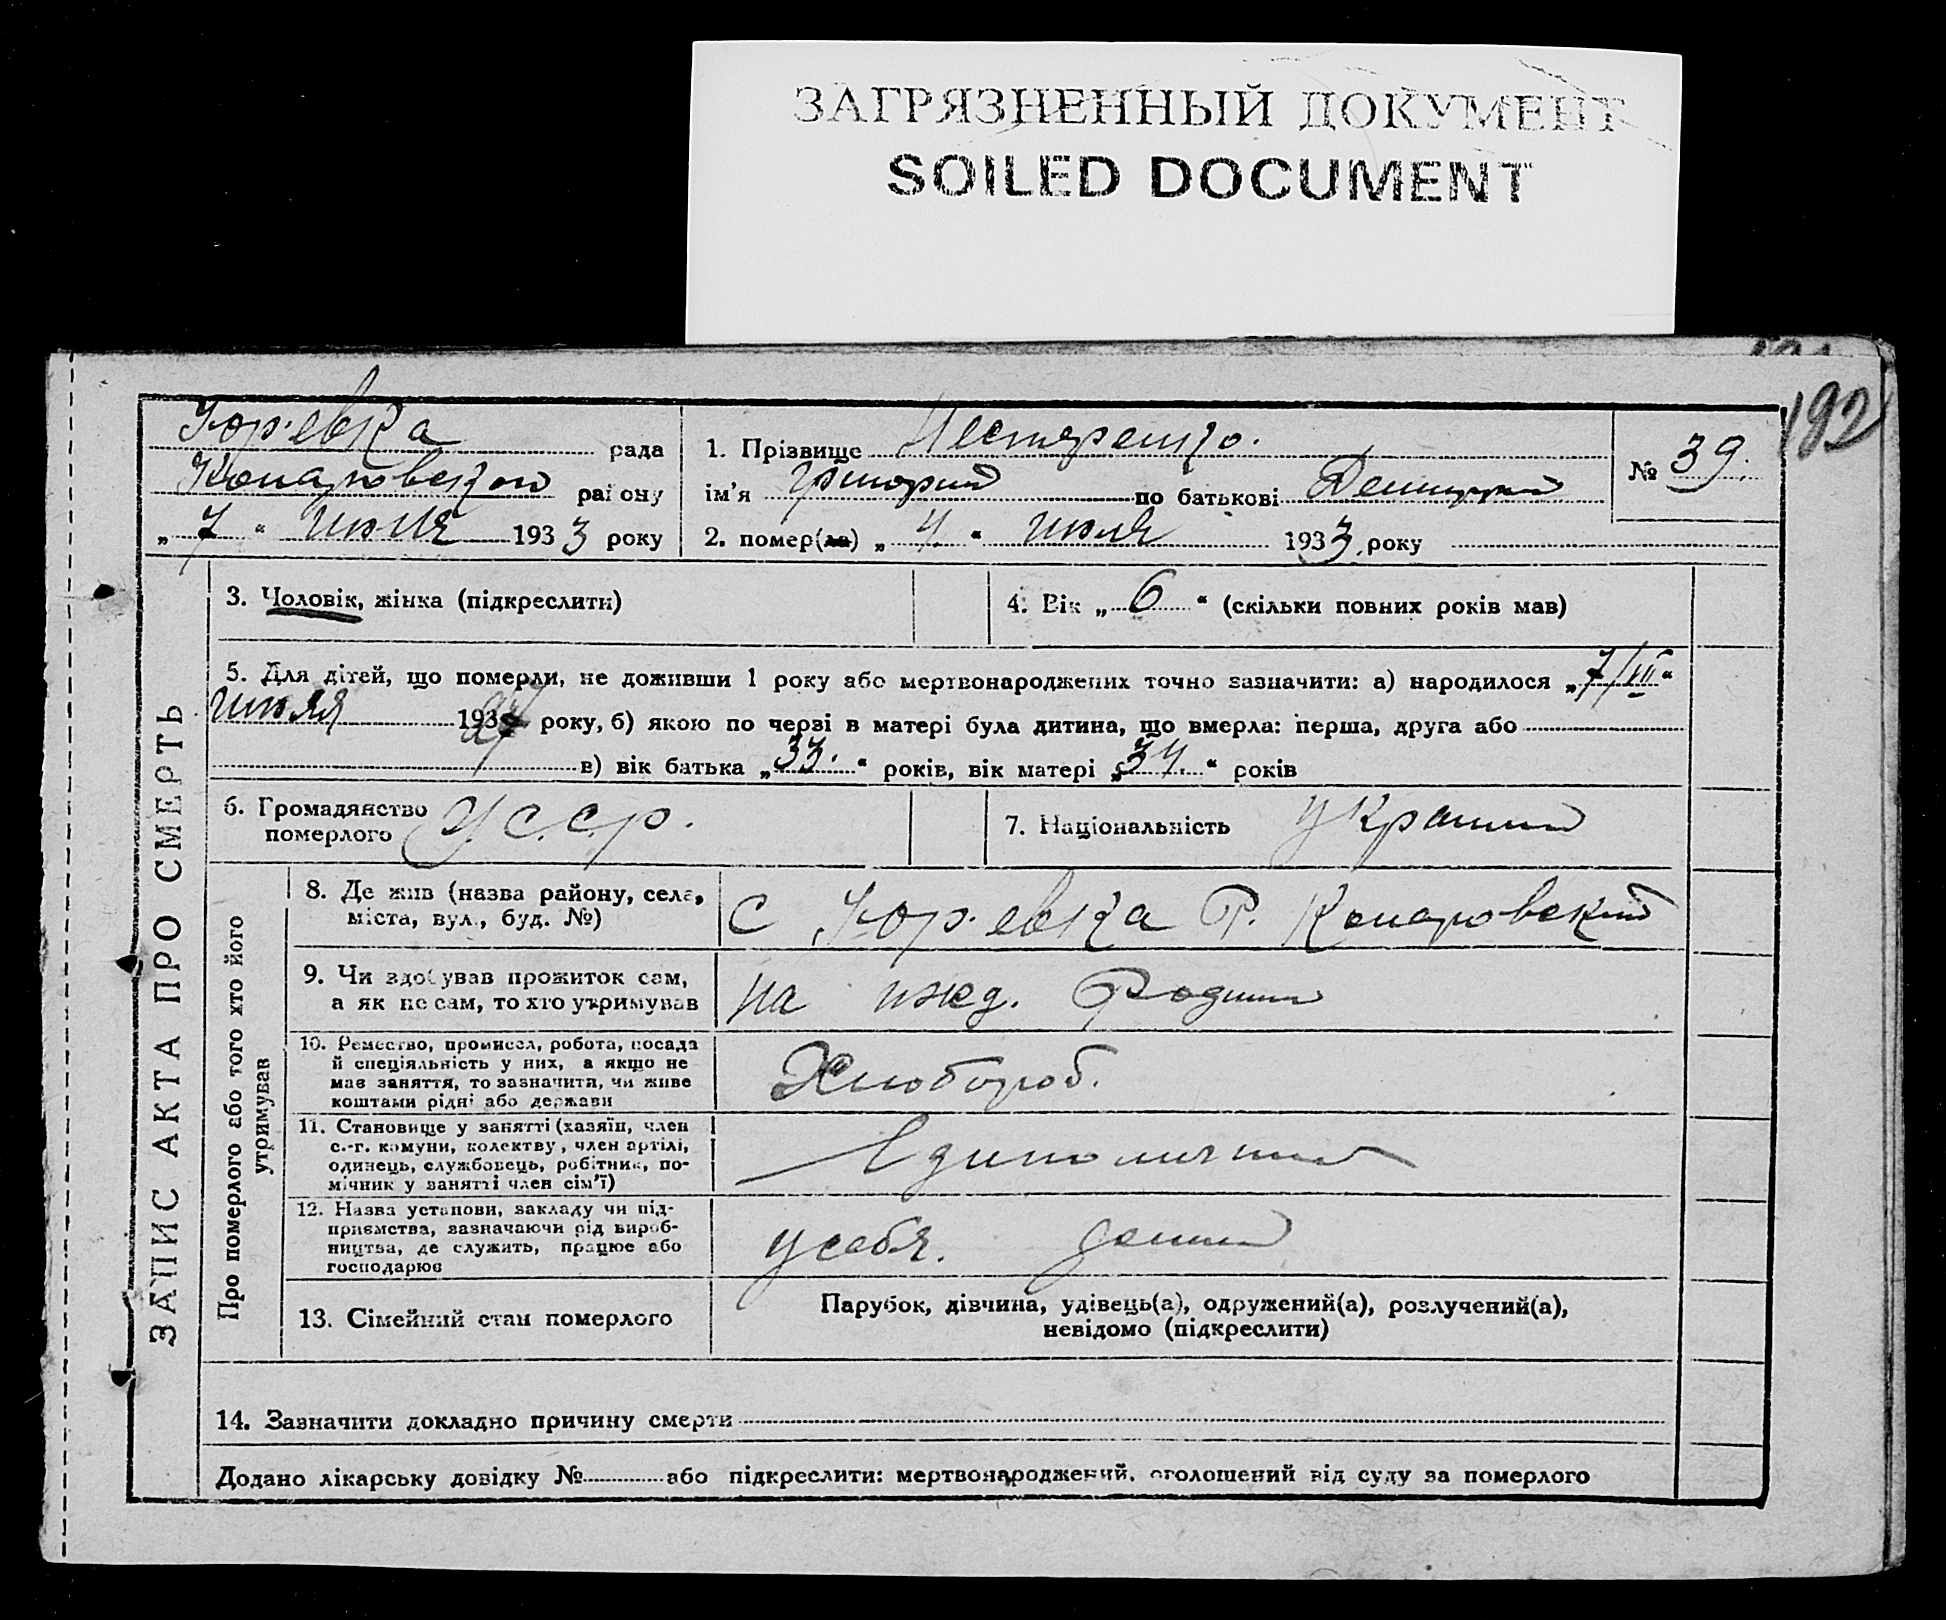 ЗАГРЯЗНЕННЫЙ ДОКУМЕНТ
SOILED DOCUMENT
192
Юр'евка рада
району
„ 7 “ июля 1933 року
1. Прізвище Нестеренко.
ім'я Григорий по батькові
2. помер(ла) „ 4. “ июля 1933 року
№ 39.
ЗАПИС АКТА ПРО СМЕРТЬ
3. Чоловік, жінка (підкреслити)
4. Вік „ 6 “ (скільки повних років мав)
5. Для дітей, що померли, не доживши 1 року або мертвонароджених точно зазначити: а) народилося „ 7/VII “
июля 193 року, б) якою по черзі в матері була дитина, що вмерла: перша, друга або
в) вік батька „ 33. “ років, вік матері „ 34. “ років
6. Громадянство
померлого У.С.С.Р.
7. Національність Украинец
Про померлого або того хто його
утримував
8. Де жив (назва району, села,
міста, вул., буд. №)
с Юр'евка Р.
9. Чи здобував прожиток сам,
а як не сам, то хто утримував
на ижд. Родини
10. Ремество, промисел, робота, посада
й спеціяльність у них, а якщо не
мав заняття, то зазначити, чи живе
коштами рідні або держави
Хлебороб.
11. Становище у занятті (хазяїн, член
с.-г. комуни, колективу, член артілі,
одинець, службовець, робітник, по-
мічник у занятті член сім'ї)
Единоличник
12. Назва установи, закладу чи під-
приємства, зазначаючи рід вироб-
ництва, де служить, працює або
господарює
у себя.
13. Сімейний стан померлого
Парубок, дівчина, удівець(а), одружений(а), розлучений(а),
невідомо (підкреслити)
14. Зазначити докладно причину смерти
Додано лікарську довідку № або підкреслити: мертвонароджений, оголошений від суду за померлого